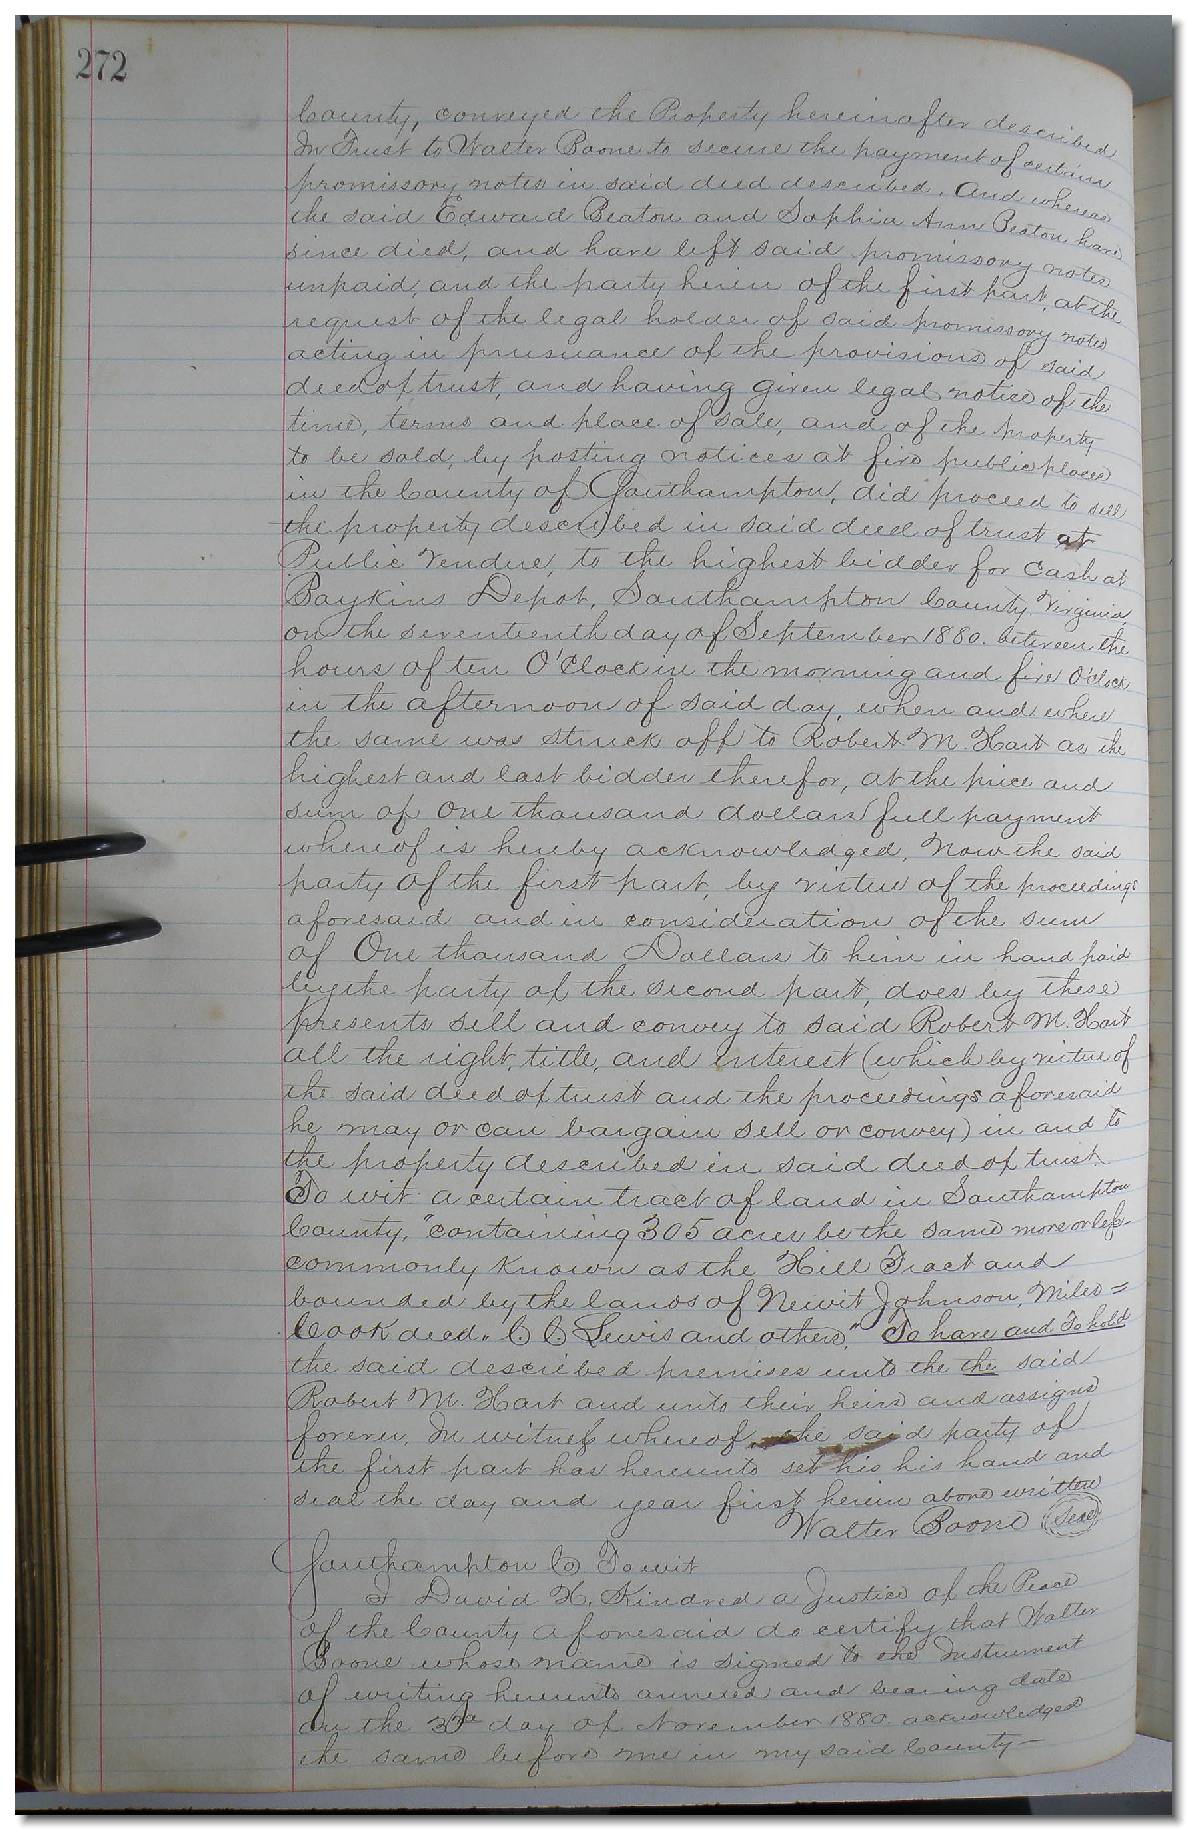 272
County, conveyed the Property hereinafter described
In Trust to Walter Boone to secure the payment of certain
promissory notes in said deed described. And whereas
the said Edward Beaton and Sophia Ann Beaton have
since died, and have left said promissory notes
unpaid, and the party herein of the first part, at the
request of the legal holder of said promissory notes
acting in prusuance of the provisions of said
deed of trust, and having given legal notice of the
time, terms and place of sale, and of the property
to be sold, by posting notices at five public places
in the County of Southampton, did proceed to sell
the property described in said deed of trust at
Public Vendue, to the highest bidder for Cash at
Boykins Depot, Southampton County Virginia,
on the seventeenth day of September 1880. between the
hours of ten O'Clock in the morning and five O'Clock
in the afternoon of said day, when and where
the same was struck off to Robert M. Hart as the
highest and last bidder therefor, at the price and
sum of One thousand dollars full payment
whereof is hereby acknowledged. Now the said
party of the first part, by virtue of the proceedings
aforesaid and in consideration of the sum
of One thousand Dollars to him in hand paid
by the party of the second part, does by these
presents sell and convey to said Robert M. Hart
all the right, title, and interest (which by virtue of
the said deed of trust and the proceedings aforesaid
he may or can bargain sell or convey) in and to
the property described in said deed of trust.
To wit a certain tract of land in Southampton
County, "containing 305 acres be the same more or less
commonly known as the Hill Tract and
bounded by the lands of Newit Johnson, Miles =
Cook decd. C C Lewis and others." To have and To hold
the said described premises unto the the said
Robert M. Hart and unto their heirs and assigns
forever. In witness whereof the said party of
the first part has hereunto set his his hand and
seal the day and year first herein above written
Walter Boone (Seal)
Southampton Co To wit
I David H. Kindred a Justice of the Peace
of the County aforesaid do certify that Walter
Boone whose name is signed to the Instrument
of writing hereunto annexed and bearing date
on the 3rd day of November 1880. acknowledged
the same before me in my said County—